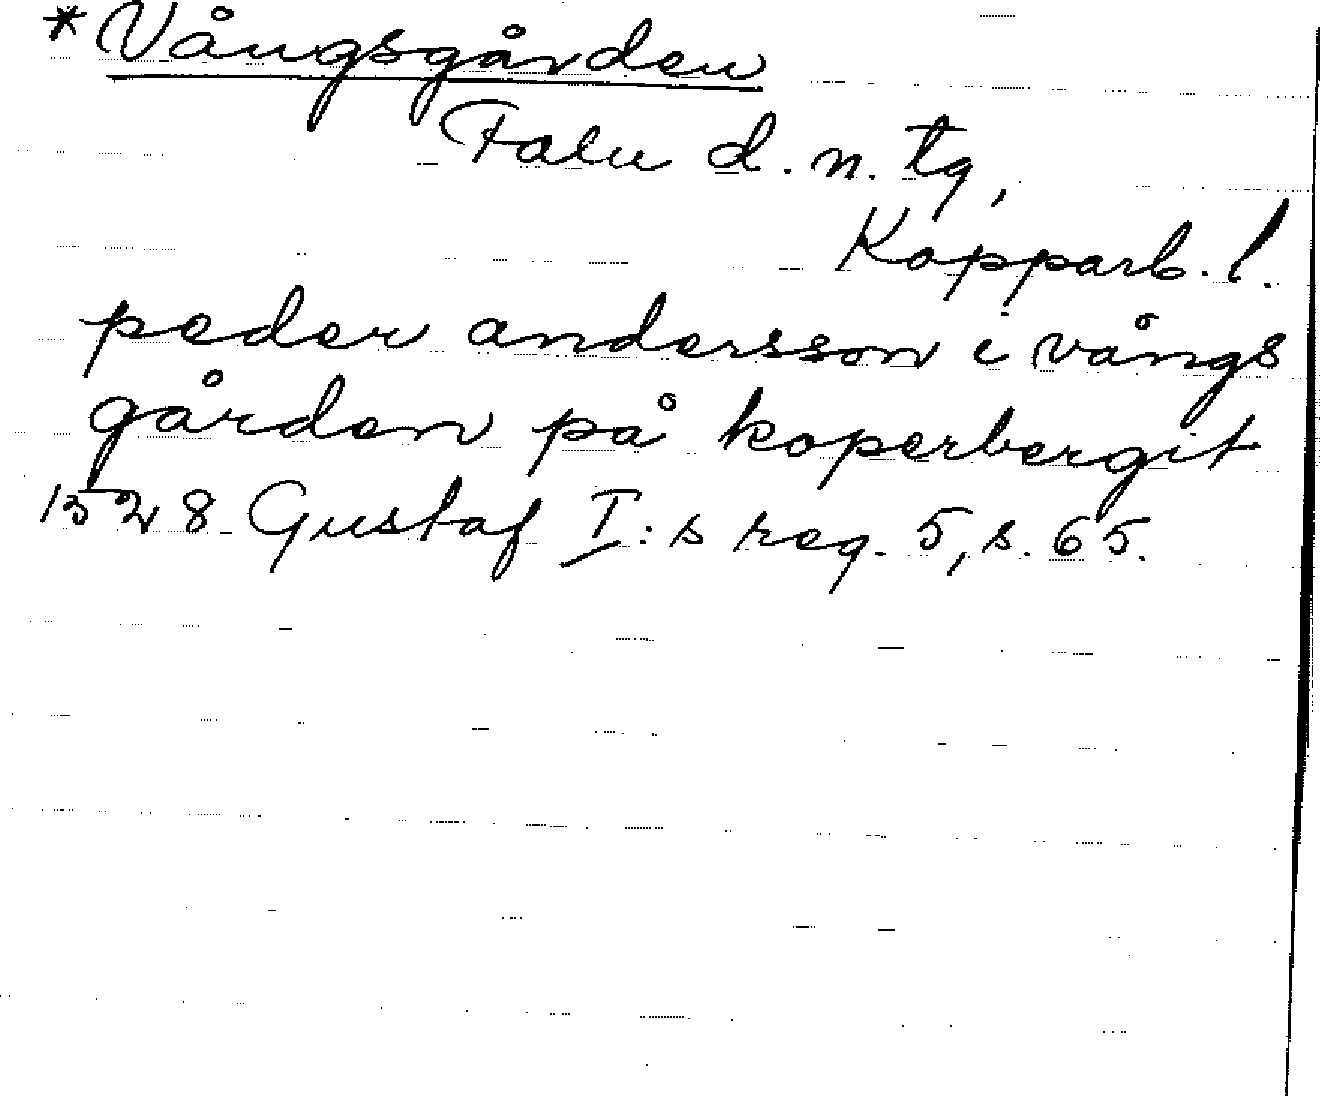 *Vångsgården
Falu d. n. tg,
Kopparb. l.
peder andersson i vångs
gården på koperbergit
1528 Gustaf I:s reg. 5, s. 65.